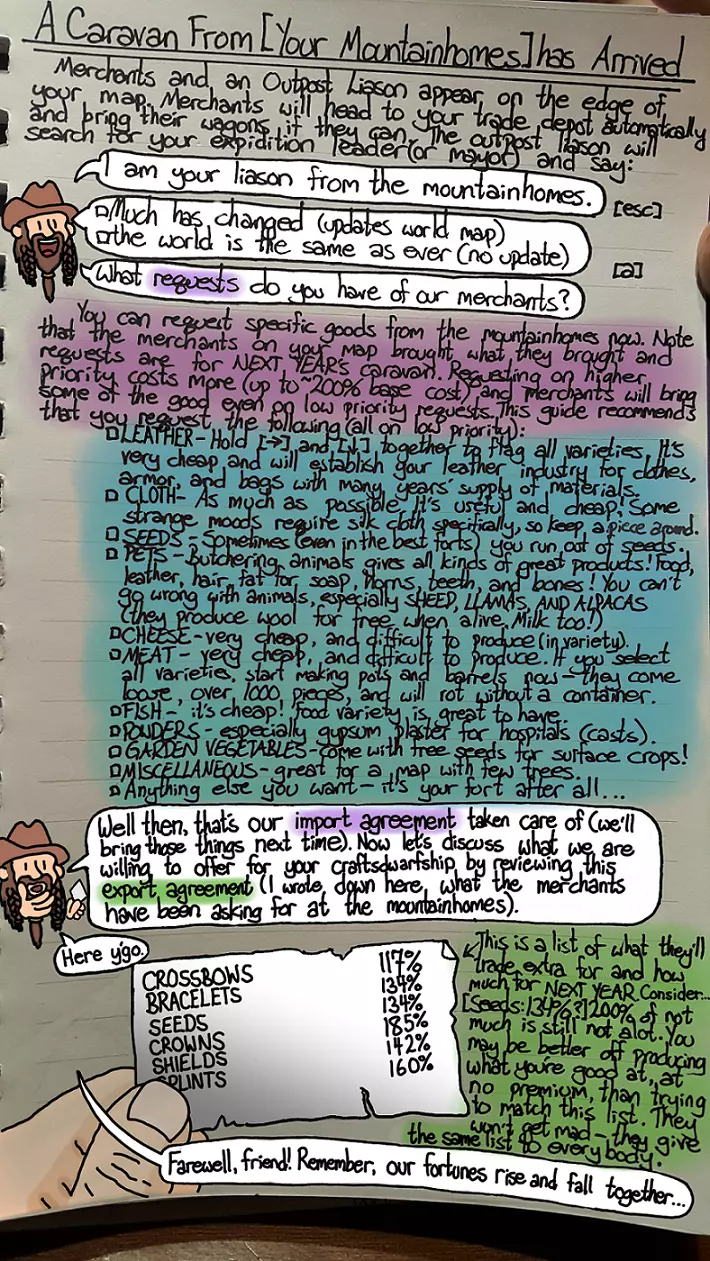 A Caravan From [Your Mountainhomes] has Arrived
Merchants and an Outpost Liason appear on the edge of
your map. Merchants will head to your trade depot automatically
and bring their wagons if they can. The outpost liason will
search for your expidition leader (or mayor) and say:
I am your liason from the mountainhomes.
[esc]
□Much has changed (updates world map)
□the world is the same as ever (no update)
[a]
What requests do you have of our merchants?
You can request specific goods from the mountainhomes now. Note
that the merchants on your map brought what they brought and
requests are for NEXT YEAR's caravan. Requesting on higher
priority costs more (up to ~200% base cost) and merchants will bring
some of the good even on low priority requests. This guide recommends
that you request the following (all on low priority):
□LEATHER- Hold [→] and [↓] together to flag all varieties. It's
very cheap and will establish your leather industry for clothes,
armor, and bags with many years' supply of materials.
□ CLOTH- As much as possible. It's useful and cheap! Some
strange moods require silk cloth specifically, so keep a piece around.
□ SEEDS - Sometimes (even in the best forts) you run out of seeds.
□ PETS - Butchering animals gives all kinds of great products! Food,
leather, hair, fat for soap, horns, teeth, and bones! You can't
go wrong with animals, especially SHEEP, LLAMAS, AND ALPACAS
(they produce wool for free when alive. Milk too!)
□CHEESE-very cheap, and difficult to produce (in variety).
□MEAT- very cheap, and difficult to produce. If you select
all varieties, start making pots and barrels now- they come
loose, over 1000 pieces, and will rot without a container.
□FISH- it's cheap! food variety is great to have.
□POWDERS - especially gypsum plaster for hospitals (casts).
□ GARDEN VEGETABLES-come with free seeds for surface crops!
□MISCELLANEOUS- great for a map with few trees.
□Anything else you want- it's your fort after all...
Well then, that's our import agreement taken care of (we'll
bring those things next time). Now let's discuss what we are
willing to offer for your craftsdwarfship by reviewing this
export agreement (I wrote down here what the merchants
have been asking for at the mountainhomes).
Here y'go.
CROSSBOWS 117%
BRACELETS 134%
SEEDS 134%
CROWNS 185%
SHIELDS 142%
SPLINTS 160%
This is a list of what they'll
trade extra for and how
much for NEXT YEAR. Consider...
[Seeds: 134%?] 200% of not
much is still not alot. You
may be better off producing
what you're good at, at
no premium, than trying
to match this list. They
won't get mad - they give
the same list to everybody.
Farewell, friend! Remember, our fortunes rise and fall together...